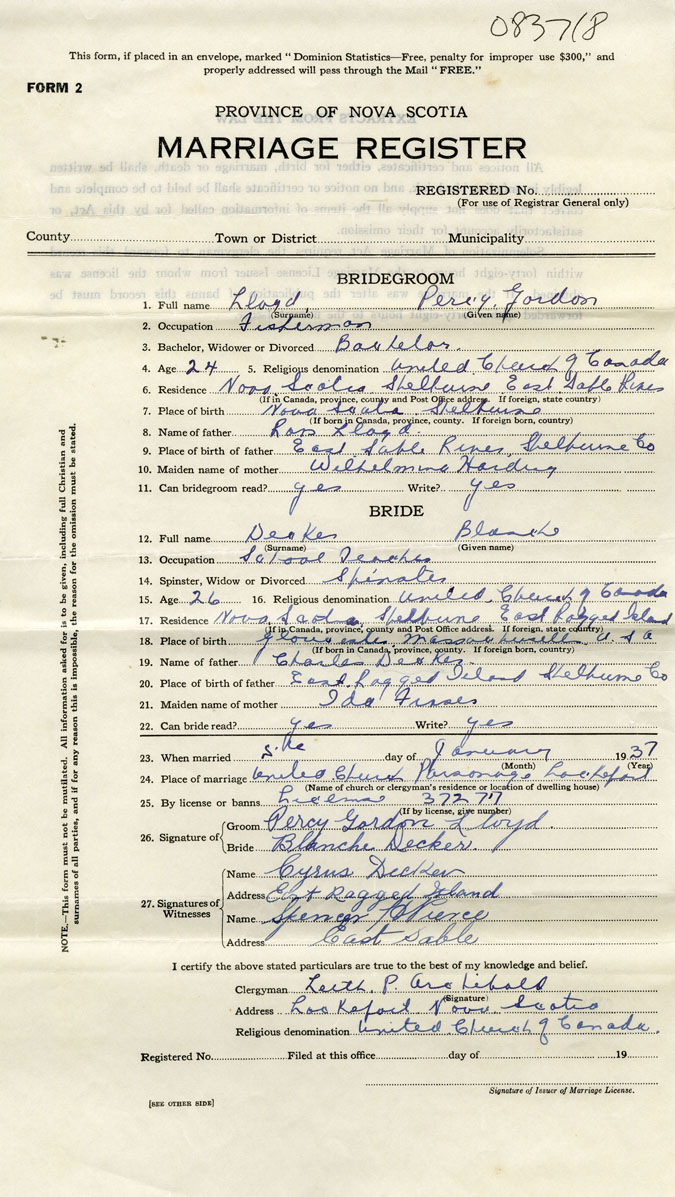 083718
This form, if placed in an envelope, marked “ Dominion Statistics—Free, penalty for improper use $300,” and
properly addressed will pass through the Mail “ FREE.”
FORM 2
PROVINCE OF NOVA SCOTIA
MARRIAGE REGISTER
REGISTERED No.
(For use of Registrar General only)
County Town or District Municipality
BRIDEGROOM
1. Full name Lloyd Percy Gordon
(Surname) (Given name)
2. Occupation Fisherman
3. Bachelor, Widower or Divorced Bachelor
4. Age 24 5. Religious denomination United Church of Canada
6. Residence Nova Scotia Shelburne East Sable River
(If in Canada, province, county and Post Office address. If foreign, state country)
7. Place of birth Nova Scotia Shelburne
(If born in Canada, province, county. If foreign born, country)
8. Name of father Lloyd
9. Place of birth of father East Sable River Shelburne Co
10. Maiden name of mother Wilhelmina Harding
11. Can bridegroom read? yes Write? yes
BRIDE
12. Full name Decker Blanche
(Surname) (Given name)
13. Occupation School Teacher
14. Spinster, Widow or Divorced Spinster
15. Age 26 16. Religious denomination United Church of Canada
17. Residence Nova Scotia, Shelburne East Ragged Island
(If in Canada, province, county and Post Office address. If foreign, state country)
18. Place of birth Gloucester Massachusetts U.S.A
(If born in Canada, province, county. If foreign born, country)
19. Name of father Charles Decker
20. Place of birth of father East Ragged Island Shelburne Co
21. Maiden name of mother Ida
22. Can bride read? yes Write? yes
23. When married day of January 1937
(Month) (Year)
24. Place of marriage United Church Parsonage Lockeport
(Name of church or clergyman's residence or location of dwelling house)
25. By license or banns License 37277
(If by license, give number)
26. Signature of Groom Percy Gordon Lloyd.
Bride Blanche Decker.
27. Signatures of Witnesses
Name Cyrus Decker
Address East Ragged Island
Name Spencer Pierce
Address East Sable
I certify the above stated particulars are true to the best of my knowledge and belief.
Clergyman Leith P. Archibald
(Signature)
Address Lockeport Nova Scotia
Religious denomination United Church of Canada.
Registered No. Filed at this office day of 19
Signature of Issuer of Marriage License.
[SEE OTHER SIDE]
NOTE.—This form must not be mutilated. All information asked for is to be given, including full Christian and
surnames of all parties, and if for any reason this is impossible, the reason for the omission must be stated.